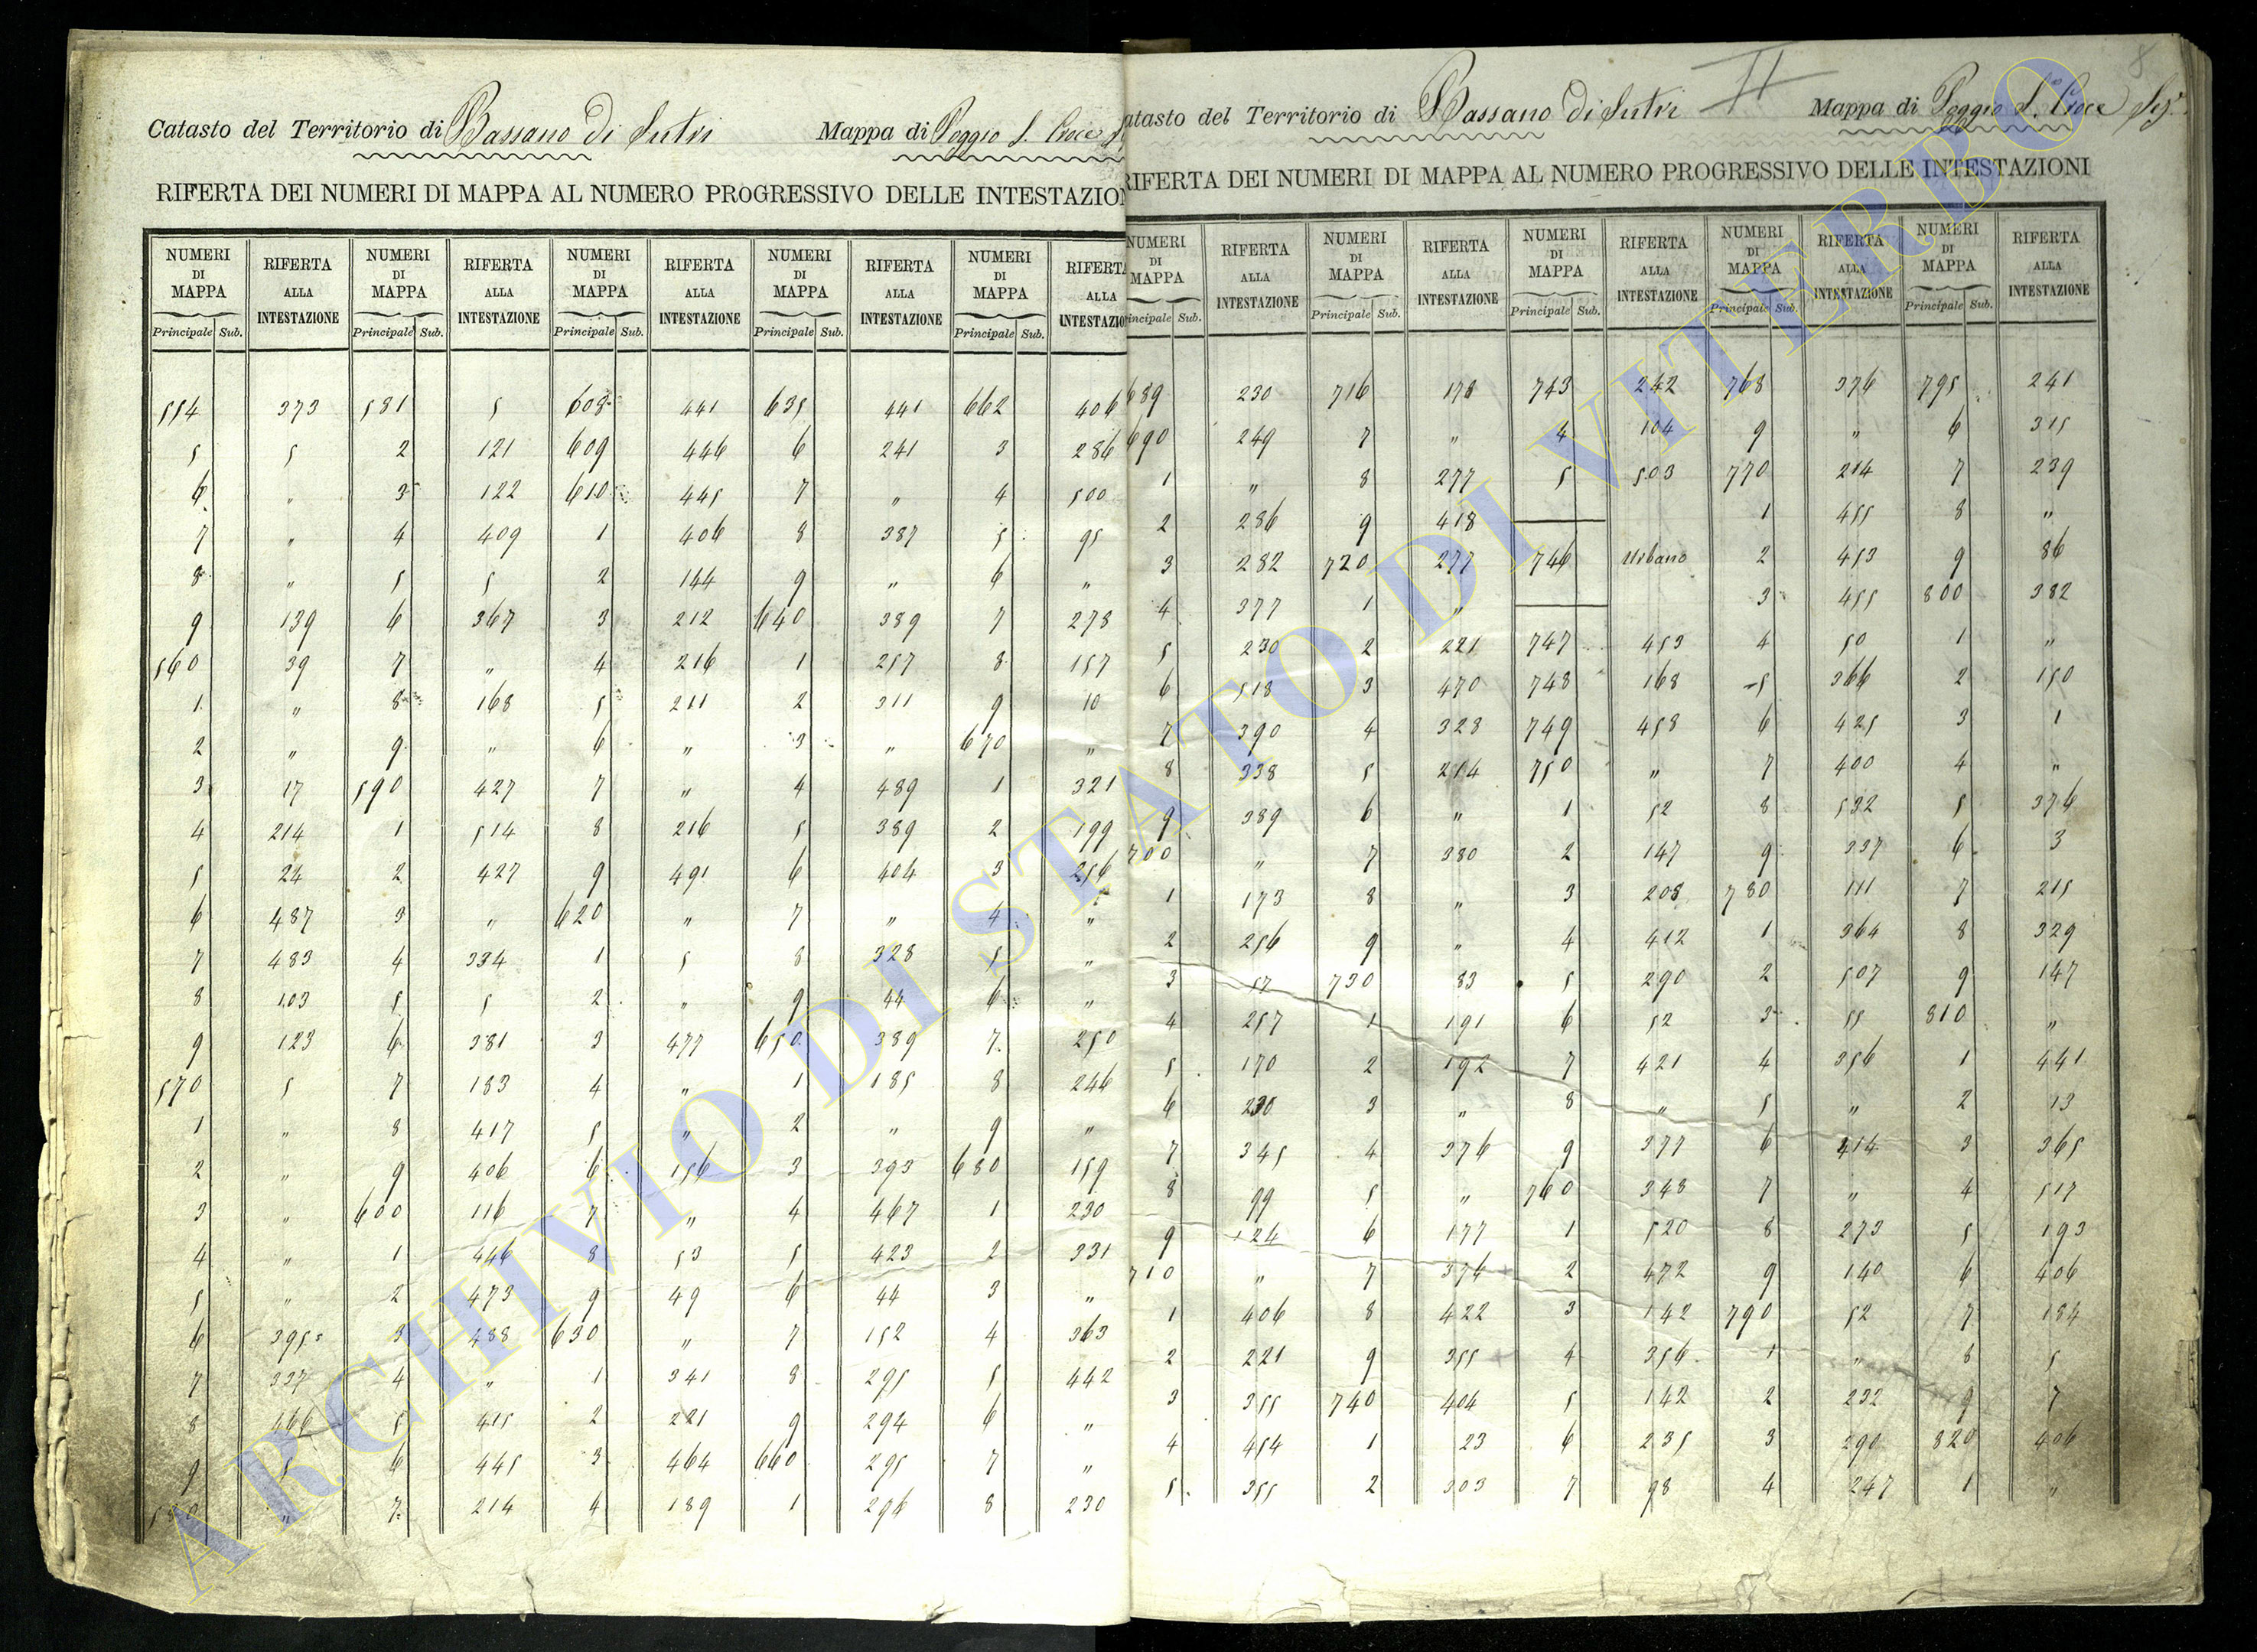 Catasto del Territorio di Bassano di Sutri Mappa di Poggio S. Croce
RIFERTA DEI NUMERI DI MAPPA AL NUMERO PROGRESSIVO DELLE INTESTAZION
NUMERI DI MAPPA RIFERTA ALLA INTESTAZIONE NUMERI DI MAPPA RIFERTA ALLA INTESTAZIONE NUMERI DI MAPPA RIFERTA ALLA INTESTAZIONE NUMERI DI MAPPA RIFERTA ALLA INTESTAZIONE NUMERI DI MAPPA RIFERTA ALLA INTESTAZIO
Principale Sub. Principale Sub. Principale Sub. Principale Sub. Principale Sub.
554 373 581 5 608 441 635 441 662 406
5 5 2 121 609 446 6 241 3 286
6 " 3 122 610 445 7 " 4 500
7 " 4 409 1 406 8 387 5 95
8 " 5 5 2 144 9 " 6 "
9 139 6 367 3 212 640 389 7 278
560 39 7 " 4 216 1 257 8 157
1 " 8 168 5 211 2 311 9 10
2 " 9 " 6 " 3 " 670 "
3 17 590 427 7 " 4 489 1 321
4 214 1 514 8 216 5 389 2 199
5 24 2 427 9 491 6 404 3 256
6 487 3 " 620 " 7 " 4 "
7 483 4 334 1 5 8 328 5 "
8 103 5 5 2 " 9 44 6 "
9 123 6 381 3 477 650 389 7 250
570 5 7 183 4 " 1 185 8 246
1 " 8 417 5 " 2 " 9 "
2 " 9 406 6 156 3 393 680 159
3 " 600 116 7 " 4 467 1 230
4 " 1 446 8 53 5 423 2 331
5 " 2 473 9 49 6 44 3 "
6 395 3 488 630 " 7 152 4 363
7 337 4 " 1 341 8 295 5 442
8 446 5 415 2 221 9 294 6 "
9 5 6 445 3 464 660 295 7 "
580 " 7 214 4 189 1 296 8 230
8
II
atasto del Territorio di Bassano di Sutri Mappa di Poggio S. Croce Sez.
RIFERTA DEI NUMERI DI MAPPA AL NUMERO PROGRESSIVO DELLE INTESTAZIONI
NUMERI DI MAPPA RIFERTA ALLA INTESTAZIONE NUMERI DI MAPPA RIFERTA ALLA INTESTAZIONE NUMERI DI MAPPA RIFERTA ALLA INTESTAZIONE NUMERI DI MAPPA RIFERTA ALLA INTESTAZIONE NUMERI DI MAPPA RIFERTA ALLA INTESTAZIONE
incipale Sub. Principale Sub. Principale Sub. Principale Sub. Principale Sub.
689 230 716 178 743 242 768 376 795 241
690 249 7 " 4 104 9 " 6 315
1 " 8 277 5 503 770 214 7 239
2 286 9 418 1 455 8 "
3 282 720 277 746 Urbano 2 453 9 86
4 377 1 " 3 455 800 382
5 230 2 221 747 453 4 50 1 "
6 518 3 470 748 168 5 366 2 150
7 390 4 328 749 458 6 425 3 1
8 338 5 214 750 " 7 400 4 "
9 389 6 " 1 52 8 532 5 376
700 " 7 380 2 147 9 337 6 3
1 173 8 " 3 208 780 111 7 215
2 256 9 " 4 412 1 364 8 329
3 57 730 83 5 290 2 507 9 147
4 257 1 191 6 52 3 55 810 "
5 170 2 192 7 421 4 356 1 441
6 230 3 " 8 " 5 " 2 13
7 345 4 376 9 377 6 414 3 365
8 99 5 " 760 348 7 " 4 517
9 124 6 177 1 520 8 273 5 193
710 " 7 374 2 472 9 140 6 406
1 406 8 422 3 142 790 52 7 184
2 221 9 355 4 356 1 " 8 5
3 355 740 404 5 142 2 232 9 7
4 454 1 23 6 235 3 290 820 406
5 355 2 303 7 98 4 247 1 "
ARCHIVIO DI STATO DI VITERBO